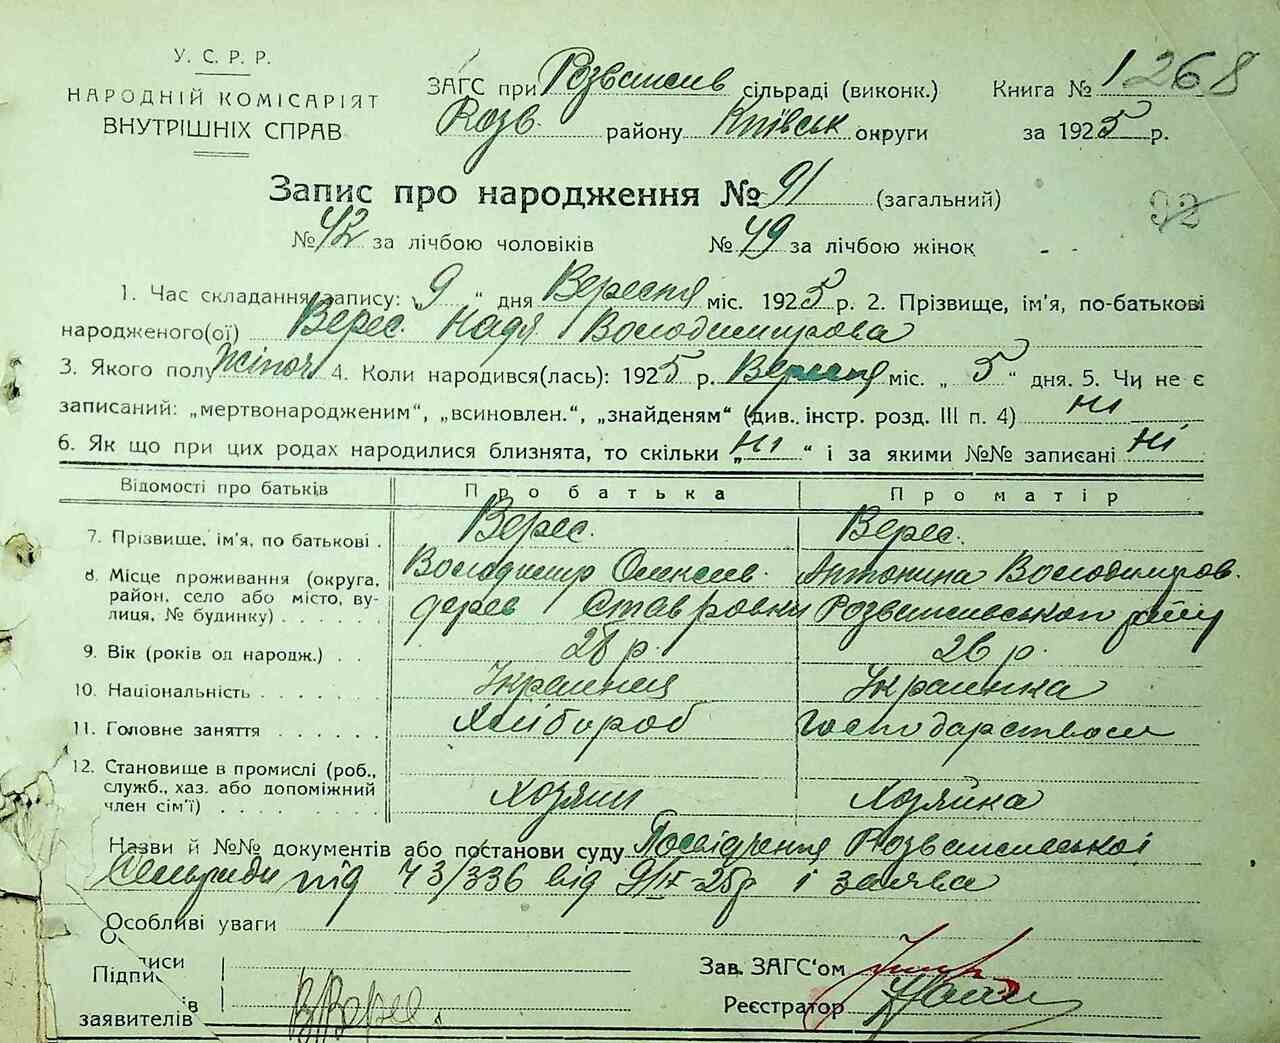 У. С. Р. Р.
НАРОДНІЙ КОМІСАРІЯТ
ВНУТРІШНІХ СПРАВ
ЗАГС при Розважив сільраді (виконк.) Книга № 1 268
Розв. району Київськ округи за 1925 р.
Запис про народження № 91 (загальний)
92
№ 42 за лічбою чоловіків № 49 за лічбою жінок
1. Час складання запису: „9“ дня Вересня міс. 1925 р. 2. Прізвище, ім'я, по-батькові
народженого(ої) Верес Надя Володимирова
3. Якого полу Жіноч 4. Коли народився(лась): 1925 р. Вересня міс. „5“ дня. 5. Чи не є
записаний: „мертвонародженим“, „всиновлен.“, „знайденям“ (див. інстр. розд. III п. 4) Ні
6. Як що при цих родах народилися близнята, то скільки „Ні“ і за якими №№ записані Ні
Відомості про батьків Про батька Про матір
7. Прізвище, ім'я, по батькові . Верес. Верес.
Володимир Олексієв. Антонина Володимиров.
8. Місце проживання (округа,
район, село або місто, ву-
лиця, № будинку) дерев Ставровки Розважевського
9. Вік (років од народж.) . . 28 р. 26 р.
10. Національність Украинец Украинка
11. Головне заняття Хлібороб Господарством
12. Становище в промислі (роб.,
служб., хаз. або допоміжний
член сім'ї) хозяин Хозяйка
Назви й №№ документів або постанови суду Посвідчення Розважевської
Сельради під 43/336 від 9/IX-25р і заява
Особливі уваги
Підписи
заявителів В Верес.
Зав. ЗАГС'ом
Реєстратор